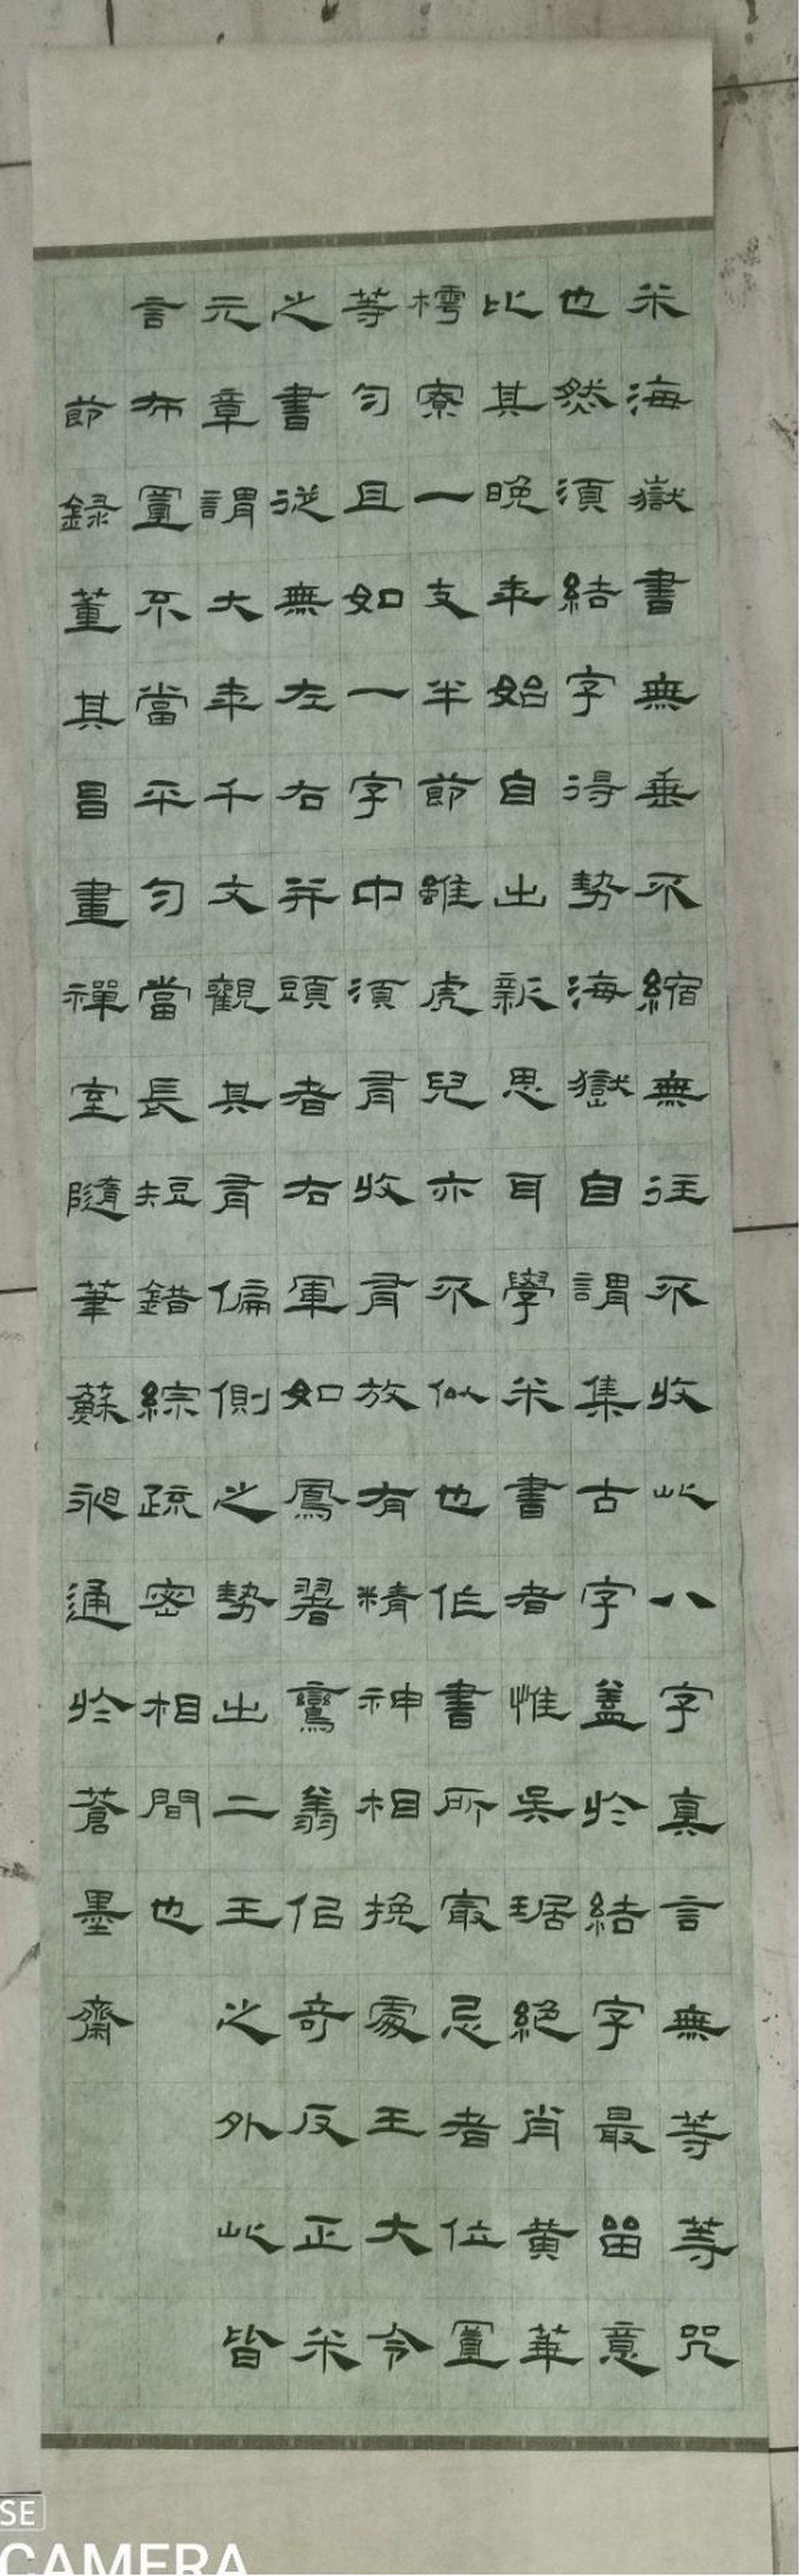 米海嶽書無垂不縮無往不收此八字真言無等等咒
也然須結字得勢海嶽自謂集古字蓋於結字最留意
比其晚年始自出新意耳學米書者惟吳琚絕肖黃華
樗寮一支半節雖虎兒亦不似也作書所最忌者位置
等勻且如一字中須有收有放有精神相挽處王大令
之書從無左右并頭者右軍如鳳翥鸞翥似奇反正米
元章謂大年千文觀其有偏側之勢出二王之外此皆
言布置不當平勻當長短錯綜疏密相間也
節録董其昌畫禪室隨筆蘇昶通於蒼墨齋
SE
CAMERA